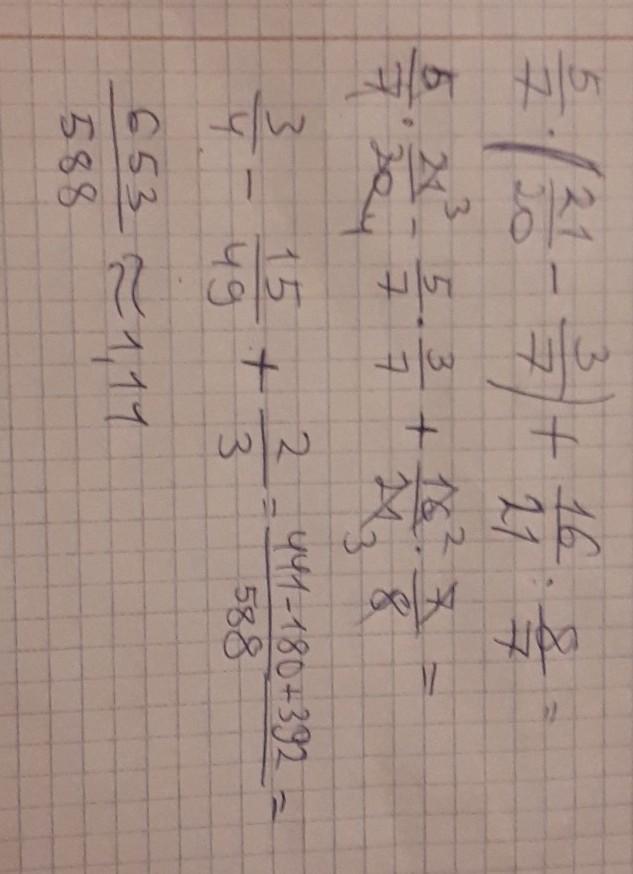 5/7 · (21/20 - 3/7) + 16/21 : 8/7 =
5/7 · 21 3/20 4 - 5/7 · 3/7 + 16 2/21 3 · 7/8 =
3/4 - 15/49 + 2/3 = 441-180+392/588 =
653/588 ≈ 1,11